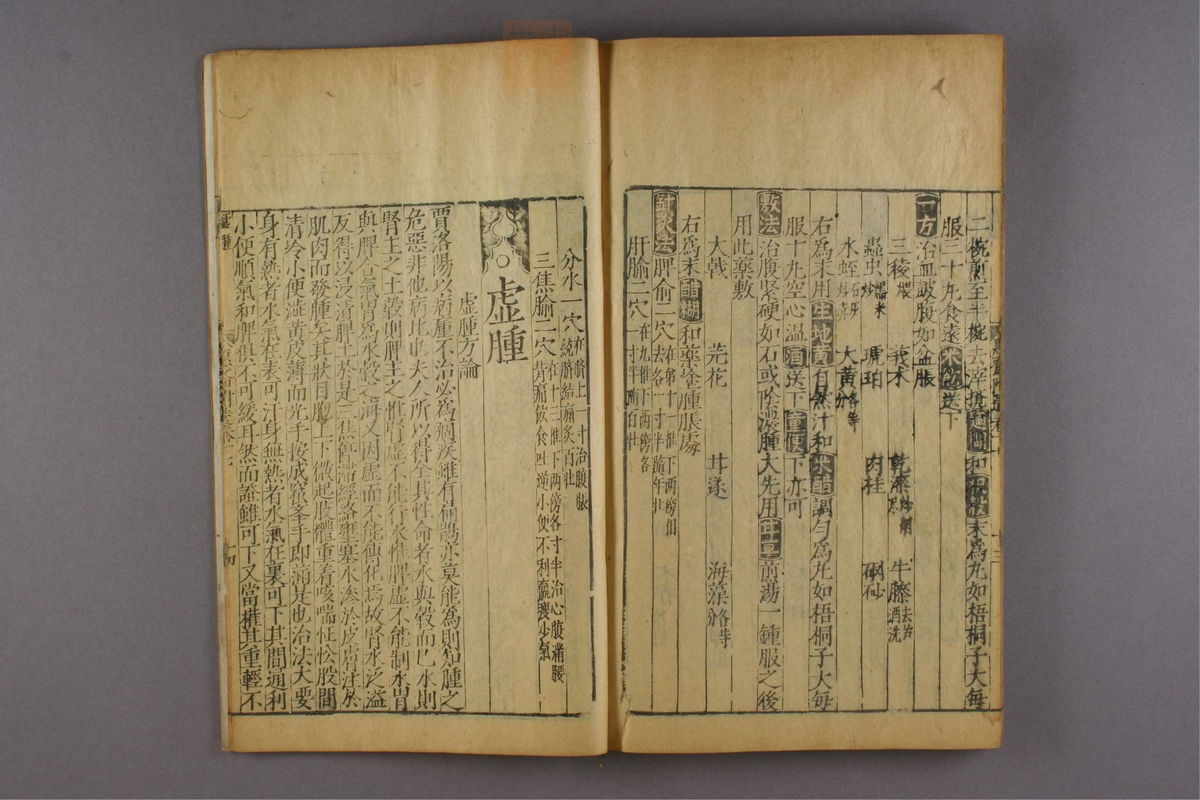 二椀煎至半椀去滓揽麺糊和枳殻末為丸如梧桐子大每
服三十丸食遠米飲送下
一方治血皷腹如盆脹
三稜煨 莪朮 乾漆炒烟 牛膝去芦酒洗
蝱虫糯米炒 琥珀 肉桂 硇砂
水蛭石灰炒 大黄各等分
右為末用生地黄自然汁和米醋調勻為丸如梧桐子大每
服十丸空心温酒送下童便下亦可
敷法治腹緊硬如石或陰囊腫大先用甘草煎湯一鍾服之後
用此藥敷
大戟 芫花 甘遂 海藻各等分
右為末醋糊和藥塗腫脹處
針灸法脾俞二穴在第十一椎下两傍相去各一寸半隨年壮
肝腧二穴在九椎下两傍各一寸半隨百壮
分水一穴在臍上一寸治腹脹繞臍結痛灸百壮
三焦腧二穴在十三椎下两傍各寸半治心腹痛腰背痛飲食吐逆小便不利羸瘦少氣
虚腫
虚腫方論
賈洛陽以病腫不治必為痼疾雖有偏鵲亦莫能為則知腫之
危惡非他病比也夫人所以得全其性命者水與穀而已水則
腎主之土穀則脾主之惟腎虚不能行水惟脾虚不能制水胃
與脾合氣胃為水穀之海又因虚而不能傳化焉故腎水泛溢
反得以浸漬脾土於是三焦停滯經絡壅塞水滲於皮膚注於
肌肉而發腫矣其狀目胞上下微起肢體重着咳喘怔忪股間
清冷小便澁黄皮薄而光手按成窟舉手即滿是也治法大要
身有熱者水氣在表可汗身無熱者水氣在裏可下其間通利
小便順氣和脾俱不可緩耳然而證雖可下又當權其重輕不